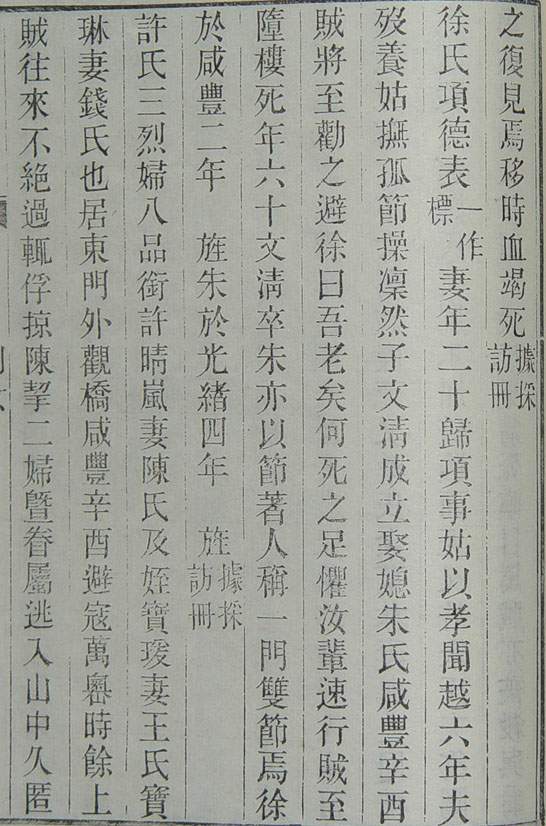 之復見焉移時血竭死據採訪冊
徐氏項德表一作標妻年二十歸項事姑以孝聞越六年夫
歿養姑撫孤節操凜然子文淸成立娶媳朱氏咸豐辛酉
賊將至勸之避徐曰吾老矣何死之足懼汝輩速行賊至
墮樓死年六十文淸卒朱亦以節著人稱一門雙節焉徐
於咸豐二年 旌朱於光緒四年 旌據採訪冊
許氏三烈婦八品銜許晴嵐妻陳氏及姪寶瑗妻王氏寶
琳妻錢氏也居東門外觀橋咸豐辛酉避寇萬嶴時餘上
賊往來不絕過輒俘掠陳挈二婦曁眷屬逃入山中久匿